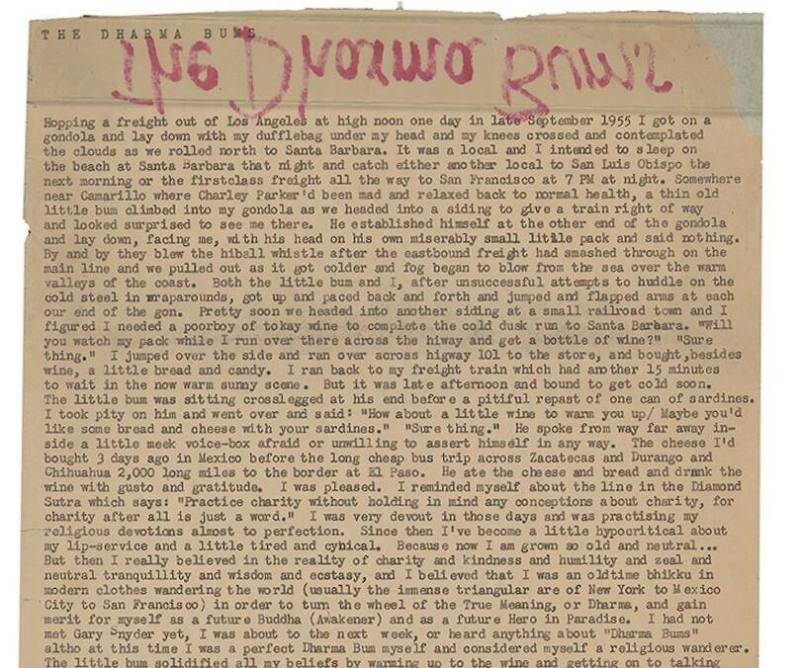 THE DHARMA BUMS
The Dharma Bums
Hopping a freight out of Los Angeles at high noon one day in late September 1955 I got on a
gondola and lay down with my dufflebag under my head and my knees crossed and contemplated
the clouds as we rolled north to Santa Barbara. It was a local and I intended to sleep on
the beach at Santa Barbara that night and catch either another local to San Luis Obispo the
next morning or the firstclass freight all the way to San Francisco at 7 PM at night. Somewhere
near Camarillo where Charley Parker'd been mad and relaxed back to normal health, a thin old
little bum climbed into my gondola as we headed into a siding to give a train right of way
and looked surprised to see me there. He established himself at the other end of the gondola
and lay down, facing me, with his head on his own miserably small little pack and said nothing.
By and by they blew the hiball whistle after the eastbound freight had smashed through on the
main line and we pulled out as it got colder and fog began to blow from the sea over the warm
valleys of the coast. Both the little bum and I, after unsuccessful attempts to huddle on the
cold steel in wraparounds, got up and paced back and forth and jumped and flapped arms at each
our end of the gon. Pretty soon we headed into another siding at a small railroad town and I
figured I needed a poorboy of tokay wine to complete the cold dusk run to Santa Barbara. "Will
you watch my pack while I run over there across the hiway and get a bottle of wine?" "Sure
thing." I jumped over the side and ran over across higway 101 to the store, and bought,besides
wine, a little bread and candy. I ran back to my freight train which had another 15 minutes
to wait in the now warm sunny scene. But it was late afternoon and bound to get cold soon.
The little bum was sitting crosslegged at his end before a pitiful repast of one can of sardines.
I took pity on him and went over and said: "How about a little wine to warm you up/ Maybe you'd
like some bread and cheese with your sardines." "Sure thing." He spoke from way far away in-
side a little meek voice-box afraid or unwilling to assert himself in any way. The cheese I'd
bought 3 days ago in Mexico before the long cheap bus trip across Zacatecas and Durango and
Chihuahua 2,000 long miles to the border at El Paso. He ate the cheese and bread and drank the
wine with gusto and gratitude. I was pleased. I reminded myself about the line in the Diamond
Sutra which says: "Practice charity without holding in mind any conceptions about charity, for
charity after all is just a word." I was very devout in those days and was practising my
religious devotions almost to perfection. Since then I've become a little hypocritical about
my lip-service and a little tired and cyhical. Because now I am grown so old and neutral...
But then I really believed in the reality of charity and kindness and humility and zeal and
neutral tranquillity and wisdom and ecstasy, and I believed that I was an oldtime bhikku in
modern clothes wandering the world (usually the immense triangular arc of New York to Mexico
City to San Francisco) in order to turn the wheel of the True Meaning, or Dharma, and gain
merit for myself as a future Buddha (Awakener) and as a future Hero in Paradise. I had not
met Gary Snyder yet, I was about to the next week, or heard anything about "Dharma Bums"
altho at this time I was a perfect Dharma Bum myself and considered myself a religious wanderer.
The little bum solidified all my beliefs by warming up to the wine and getting on to talking